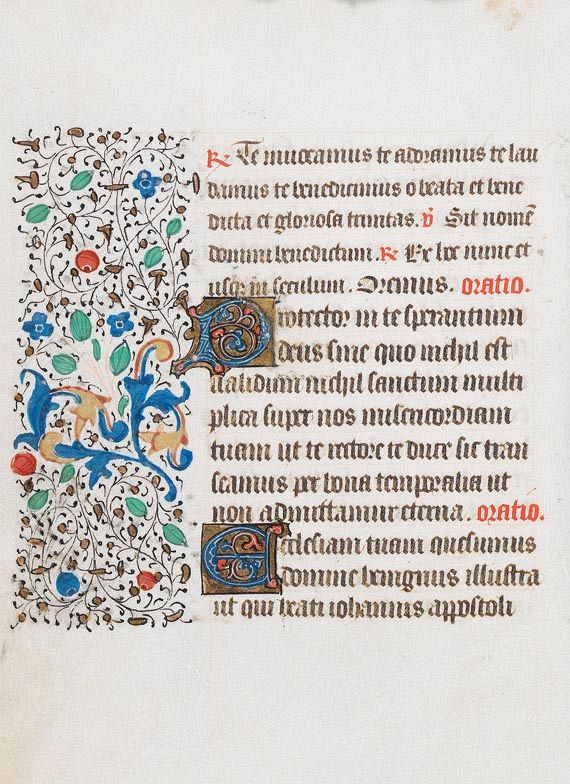 R Te inuocamus te adoramus te lau
damus te benedicimus o beata et bene
dicta et gloriosa trinitas. v Sit nomẽ
domini benedictum. R Ex hoc nunc et
usqʒ in seculum. Oremus. oratio.
Protector in te sperantium
deus sine quo nichil est
ualidum nichil sanctum multi
plica super nos misericordiam
tuam ut te rectore te duce sic tran
seamus per bona temporalia ut
non admittamur eterna. oratio.
Ecclesiam tuam quesumus
domine benignus illustra
ut qui beati iohannis appostoli